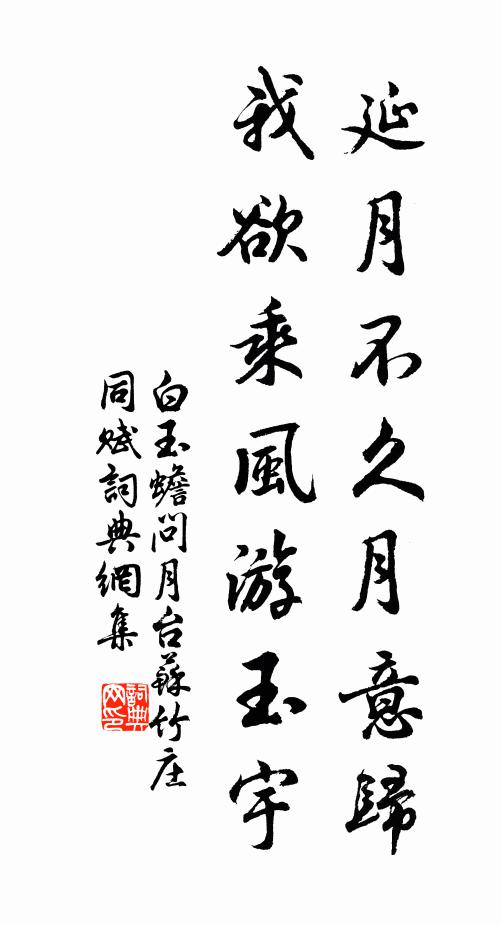 延月不久月意歸
我欲乘風游玉宇
白玉蟾問月台蘇竹庄
同賦詞典網集
詞典网印